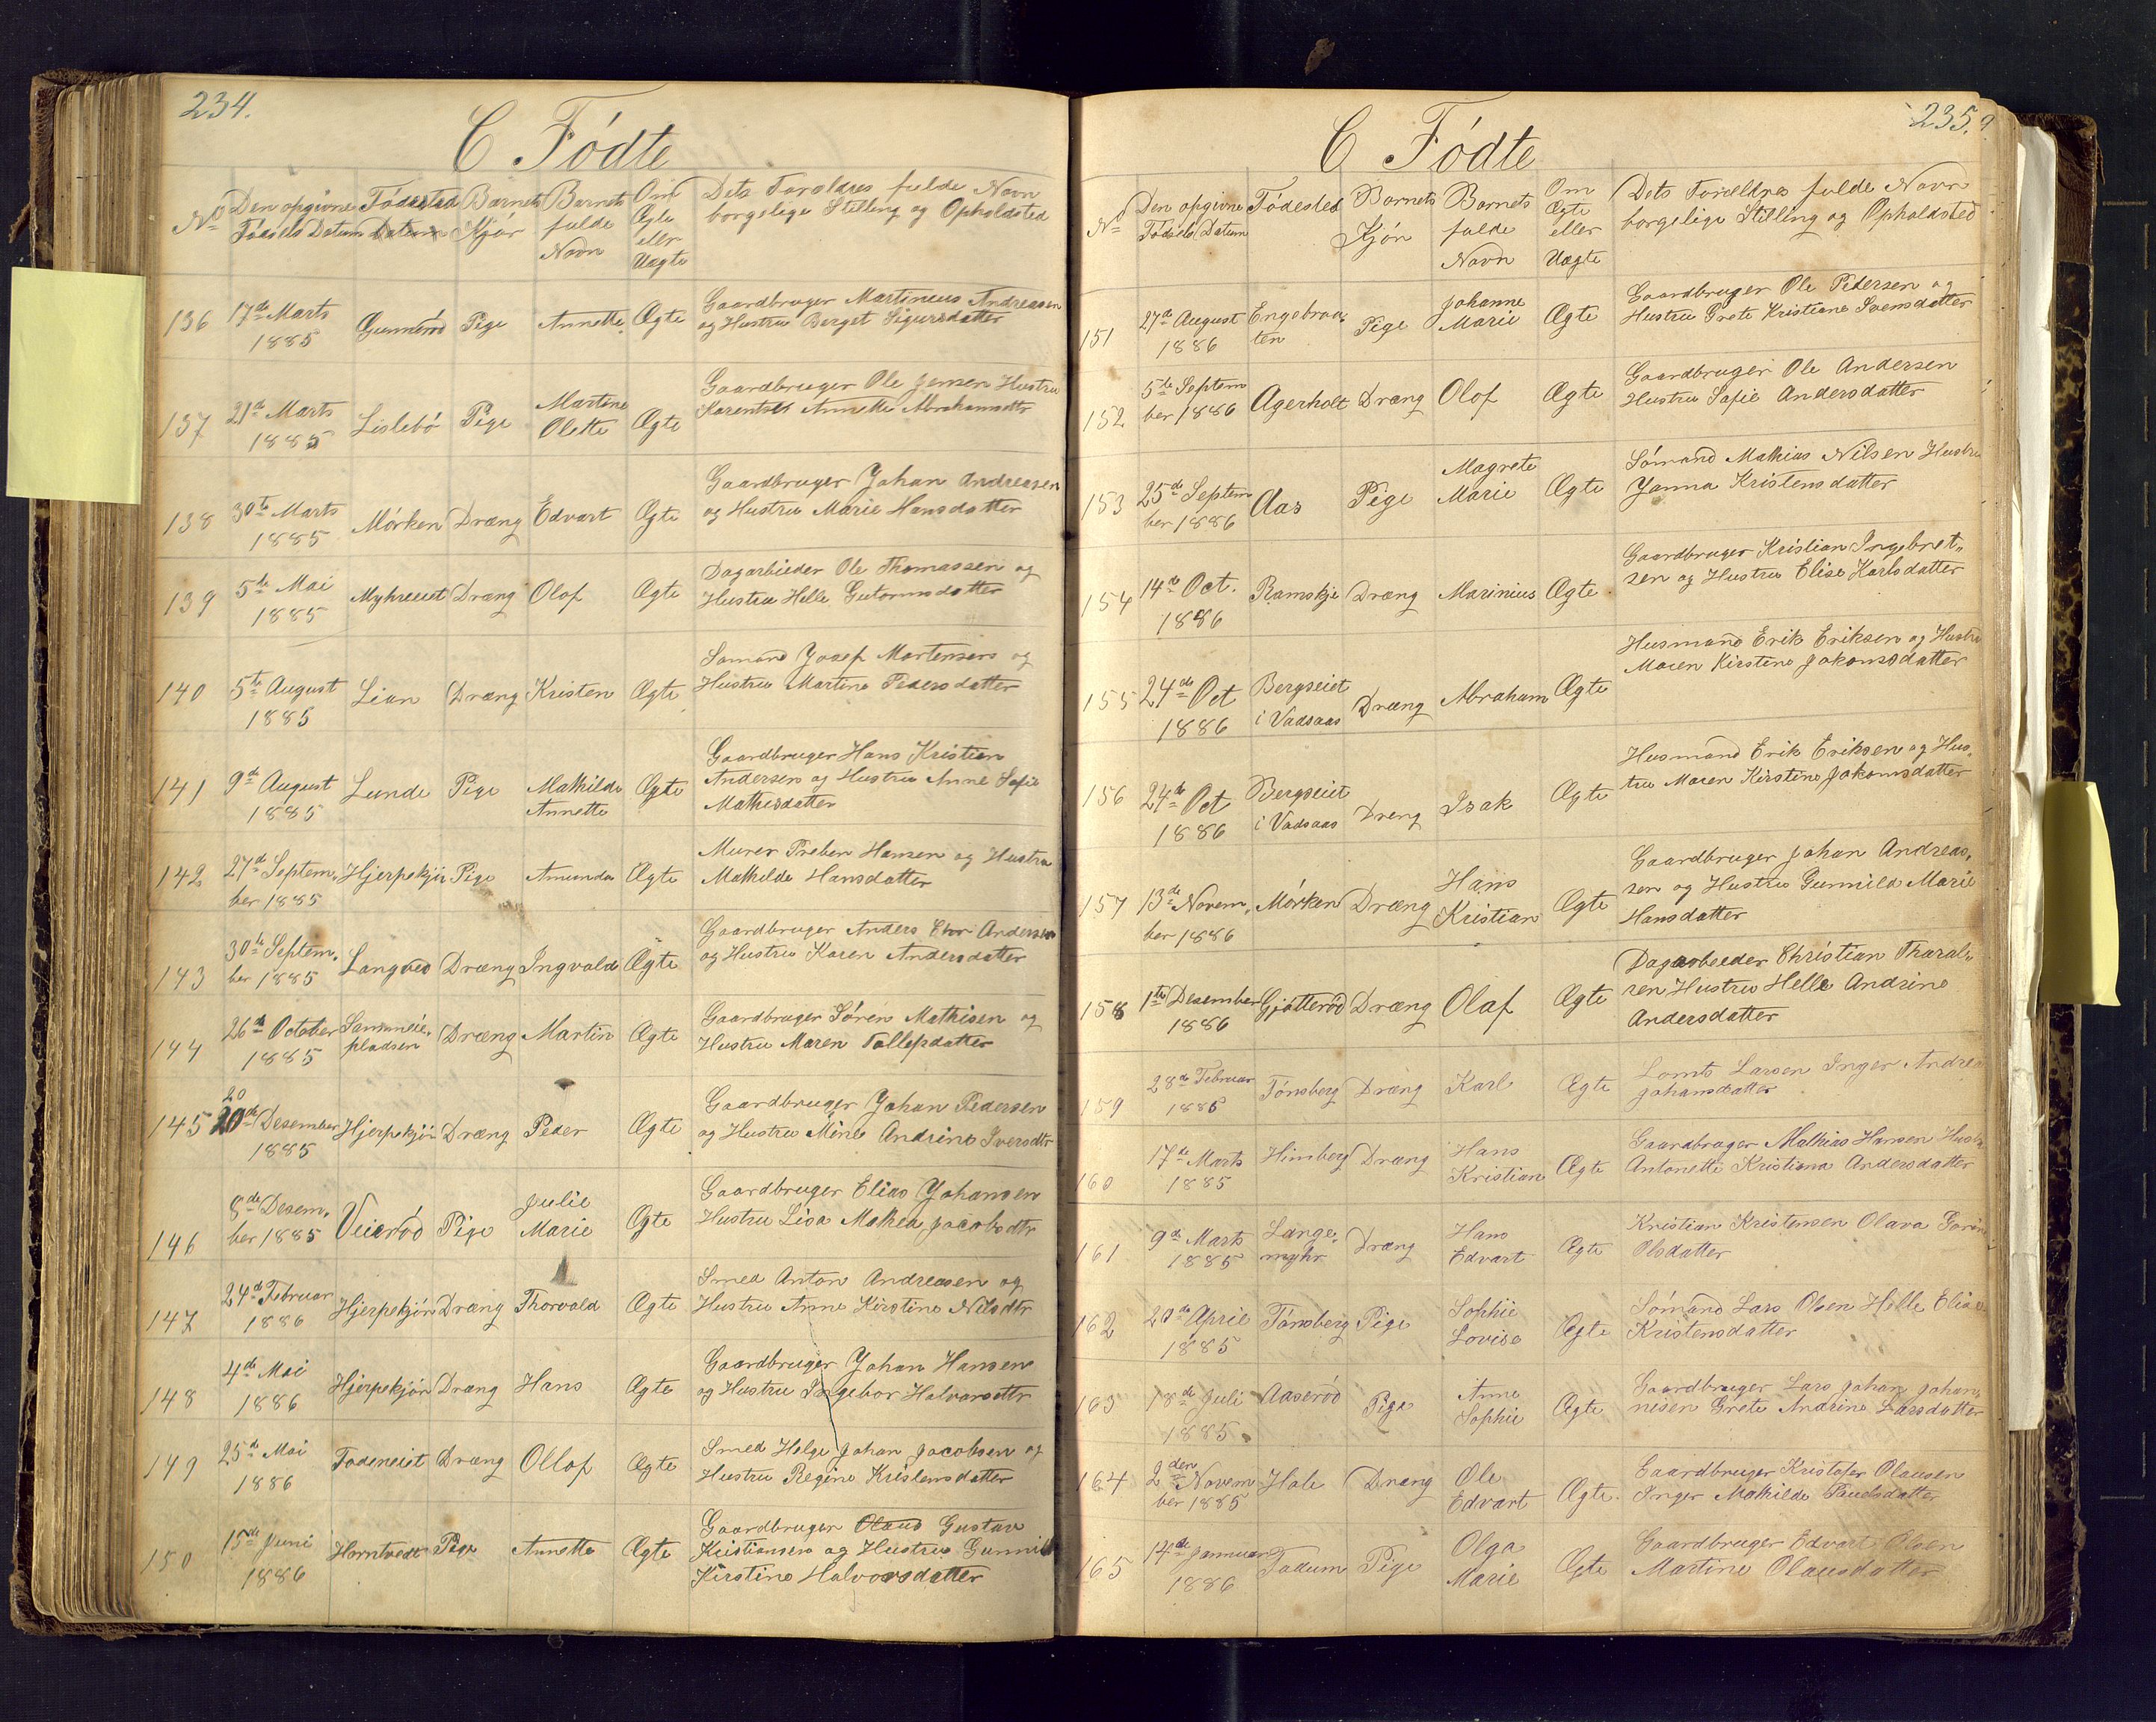 234.
C Födte
No
Den opgivne Födsels Datum
Födested Datum
Barnets Kjön
Barnets fulde Navn
Om Ægte eller Uægte
Dets Forældres fulde Navn borgelige Stilling og Opholdsted
136 17de Marts 1885 Gunneröd Pige Annette Ægte
Gaardbruger Martineus Andreasen
og Hustru Berget Sigursdatter
137 21de Marts 1885 Lislebö Pige Martine Olette Ægte
Gaardbruger Ole Jensen Hustru
Annette Abrahamsdtr
138 30te Marts 1885 Mörken Dræng Edvart Ægte
Gaardbruger Johan Andreasen
og Hustru Marie Hansdatter
139 5te Mai 1885 Dræng Olof Ægte
Dagarbieder Ole Thomassen og
Hustru Helle Gutormsdatter
140 5te August 1885 Lian Dræng Kristen Ægte
Sömand Josef Mortensen og
Hustru Martine Pedersdatter
141 9de August 1885 Lunde Pige Mathilde Annette Ægte
Gaardbruger Hans Kristian
Andersen og Hustru Anne Sofie
Mathisdatter
142 27de September 1885 Hjerpekjön Pige Amunda Ægte
Murer Preben Hansen og Hustru
Mathilde Hansdatter
143 30te September 1885 Langved Dræng Ingvald Ægte
Gaardbruger Anders Andersen
og Hustru Karen Andersdatter
144 26de October 1885 pladsen Dræng Martin Ægte
Gaardbruger Sören Mathisen og
Hustru Maren Tollefsdatter
145 20 20de Desember 1885 Hjerpekjön Dræng Peder Ægte
Gaardbruger Johan Pedersen
og Hustru Mine Andrine Iversdtr
146 8de Desember 1885 Veieröd Pige Julie Marie Ægte
Gaardbruger Elias Johansen
Hustru Lisa Mathea Jacobsdtr
147 24de Februar 1886 Hjerpekjön Dræng Thorvald Ægte
Smed Anton Andreasen og
Hustru Anne Kirstine Nilsdtr
148 4de Mai 1886 Hjerpekjön Dræng Hans Ægte
Gaardbruger Johan Hansen
og Hustru Ingebor Halvorsdtr
149 25de Mai 1886 Fodeneiet Dræng Ollof Ægte
Smed Helge Johan Jacobsen og
Hustru Regine Kristensdatter
150 15de Juni 1886 Horntvedt Pige Annette Ægte
Gaardbruger Olaus Gustav
Kristiansen og Hustru Gunnild
Kirstine Halvorsdatter
235.
C Födte
No
Den opgivne Födsels Datum
Födested
Barnets Kjön
Barnets fulde Navn
Om Ægte eller Uægte
Dets Forældres fulde Navn borgelige Stilling og Opholdsted
151 27de August 1886 Engebraaten Pige Johanne Marie Ægte
Gaardbruger Ole Pedersen og
Hustru Grete Kristiane Svensdatter
152 5te September 1886 Agerholt Dræng Olof Ægte
Gaardbruger Ole Andersen
Hustru Sofie Andersdatter
153 25de September 1886 Aas Pige Magrete Marie Ægte
Sömand Mathias Nilsen Hustru
Janna Kristensdatter
154 14de Oct. 1886 Ramskje Dræng Marinius Ægte
Gaardbruger Kristian Ingebret„
sen og Hustru Elise Karlsdatter
155 24de Oct 1886 Bergseiet i Vadsaas Dræng Abraham Ægte
Husmand Erik Eriksen og Hustru
Maren Kirstine Jakonsdatter
156 24de Oct 1886 Bergseiet i Vadsaas Dreng Isak Ægte
Husmand Erik Eriksen og Hus„
tru Maren Kirstine Jakonsdatter
157 13de November 1886 Mörken Dræng Hans Kristian Ægte
Gaardbruger Johan Andreas„
sen og Hustru Gunnild Marie
Hansdatter
158 1ste Desember 1886 Gjötteröd Dræng Olaf Ægte
Dagarbeeder Christian Tharal„
sen Hustru Helle Andrine
Andersdatter
159 28de Februar 1885 Tönsberg Dræng Karl Ægte
Larsen Inger Andrea
Johansdatter
160 17de Marts 1885 Himberg Dræng Hans Kristian Ægte
Gaardbruger Mathias Hansen Hustru
Antonette Kristiana Andersdatter
161 9de Marts 1885 Langemyhr Dræng Hans Edvart Ægte
Kristian Kristensen Olava
Olsdatter
162 20de April 1885 Tönsberg Pige Sophie Lovise Ægte
Sömand Lars Olsen Helle Elise
Kristensdatter
163 18de Juli 1885 Aaseröd Pige Anne Sophie Ægte
Gaardbruger Lars Johan Johan„
nisen Grete Andrine Larsdatter
164 2den November 1885 Hole Dræng Ole Edvart Ægte
Gaardbruger Kristofer Olausen
Inger Mathilde Paulsdatter
165 14de Januar 1886 Fadum Pige Olga Marie Ægte
Gaardbruger Edvart Olsen
Martine Olausdatter